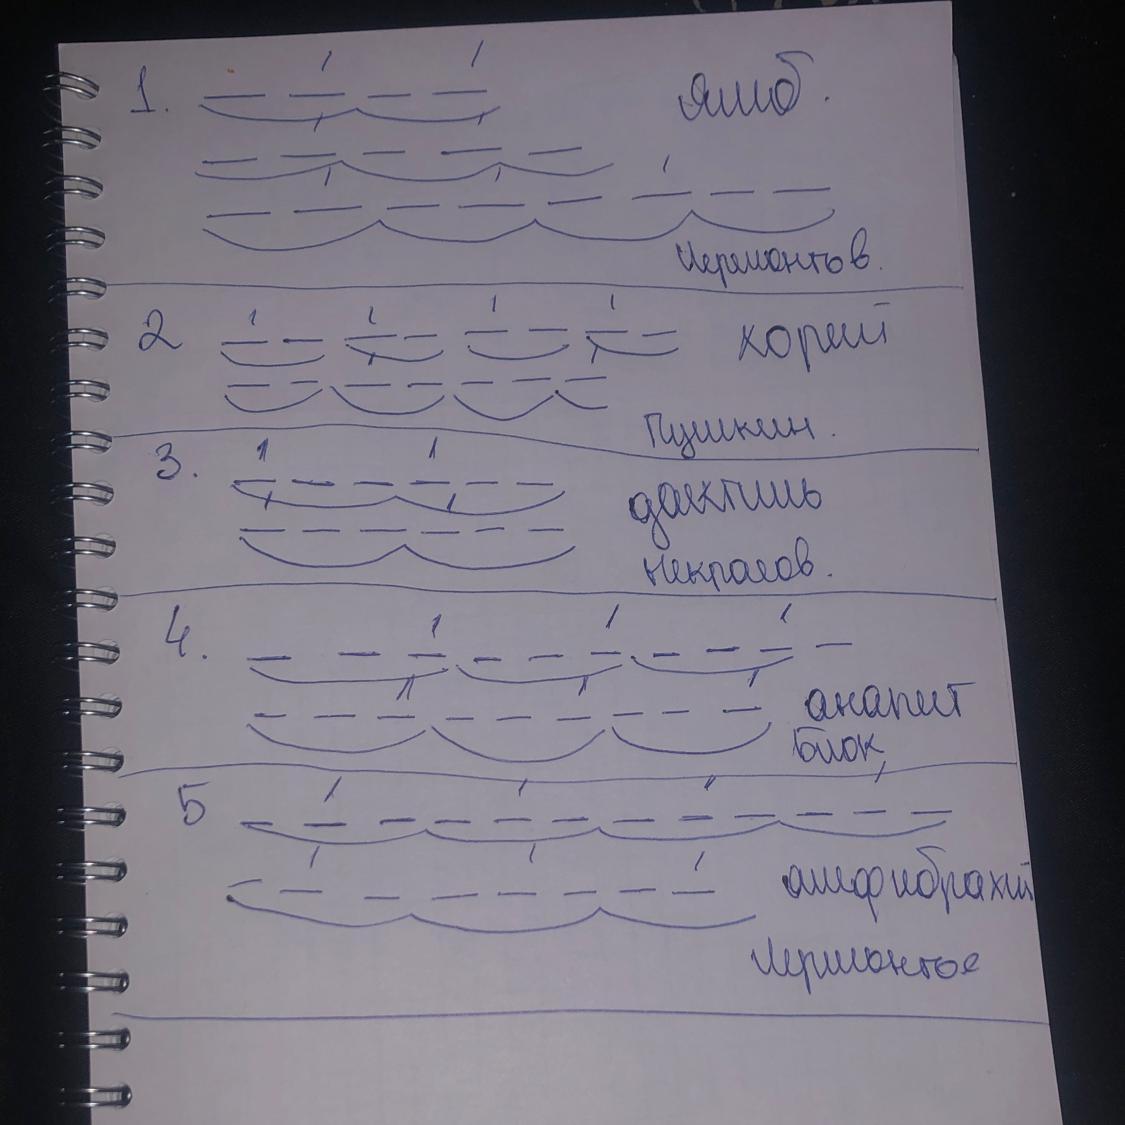 1. Ямб.
Лермонтов.
2 хорей
Пушкин.
3. дактиль
Некрасов.
4. анапест
Блок
5 амфибрахий
Лермонтов